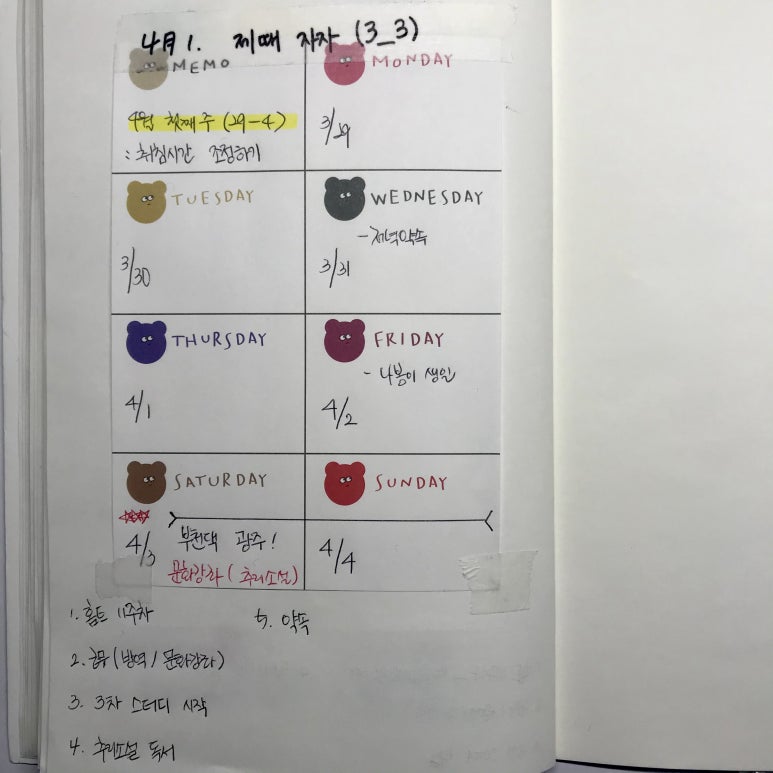 4月 1. 제때 자자 (3_3)
MEMO
4월 첫째주 (29-4)
: 취침시간 조정하기
MONDAY
3/29
TUESDAY
3/30
WEDNESDAY
- 저녁약속
3/31
THURSDAY
4/1
FRIDAY
- 나봉이 생일
4/2
SATURDAY
4/3
부천댁 광주!
문화강좌 (추리소설)
SUNDAY
4/4
1. 홈트 11주차
2. 근무 (방역 / 문화강좌)
3. 3차 스터디 시작
4. 추리소설 독서
5. 약속